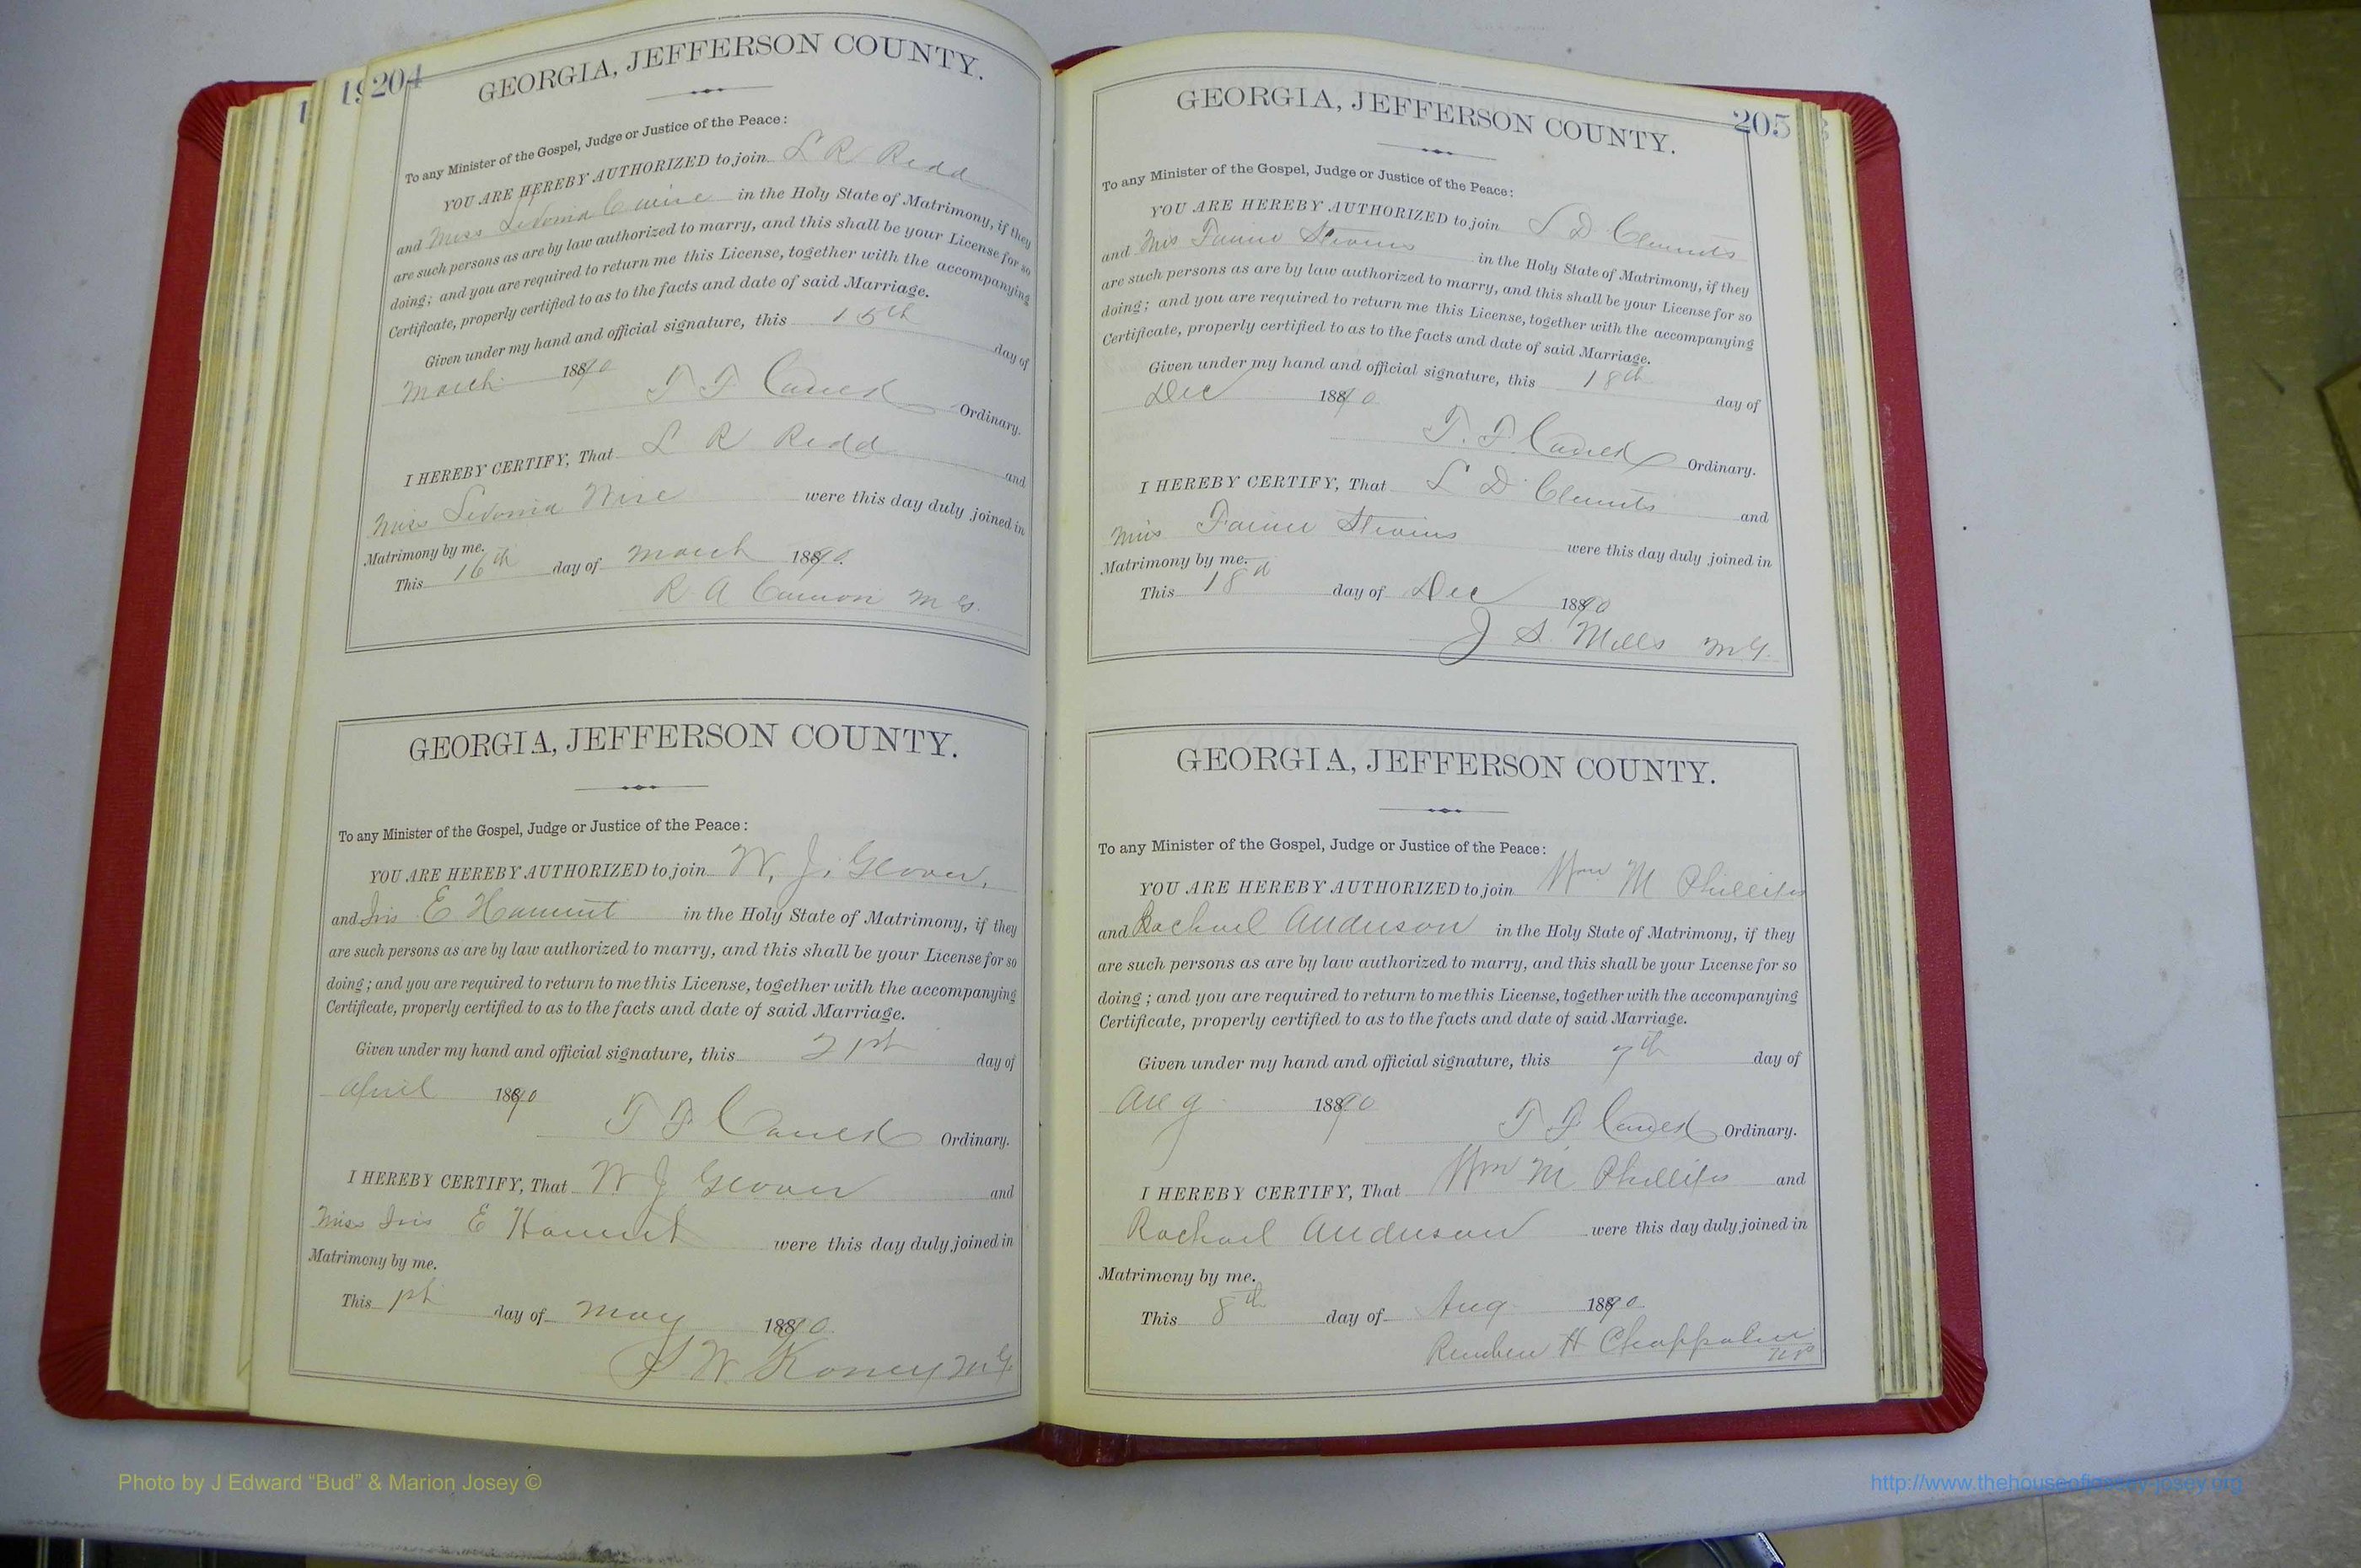 204
GEORGIA, JEFFERSON COUNTY.
To any Minister of the Gospel, Judge or Justice of the Peace:
YOU ARE HEREBY AUTHORIZED to join L R Redd
and Miss in the Holy State of Matrimony, if they
are such persons as are by law authorized to marry, and this shall be your License for so
doing; and you are required to return me this License, together with the accompanying
Certificate, properly certified to as to the facts and date of said Marriage.
Given under my hand and official signature, this 15th day of
March 1890
Ordinary.
I HEREBY CERTIFY, That L R Redd and
Miss were this day duly joined in
Matrimony by me.
This 16th day of March 1890.
R A Cannon M G.
GEORGIA, JEFFERSON COUNTY.
To any Minister of the Gospel, Judge or Justice of the Peace:
YOU ARE HEREBY AUTHORIZED to join W. J. Glover,
and Iris E in the Holy State of Matrimony, if they
are such persons as are by law authorized to marry, and this shall be your License for so
doing; and you are required to return to me this License, together with the accompanying
Certificate, properly certified to as to the facts and date of said Marriage.
Given under my hand and official signature, this 21st day of
April 1890
Ordinary.
I HEREBY CERTIFY, That W J Glover and
Miss Iris E were this day duly joined in
Matrimony by me.
This 1st day of May 1890.
M G.
205
GEORGIA, JEFFERSON COUNTY.
To any Minister of the Gospel, Judge or Justice of the Peace:
YOU ARE HEREBY AUTHORIZED to join S D Clements
and Miss Fannie Stevens in the Holy State of Matrimony, if they
are such persons as are by law authorized to marry, and this shall be your License for so
doing; and you are required to return me this License, together with the accompanying
Certificate, properly certified to as to the facts and date of said Marriage.
Given under my hand and official signature, this 18th day of
Dec 1890
Ordinary.
I HEREBY CERTIFY, That S D Clements and
Miss Fannie Stevens were this day duly joined in
Matrimony by me.
This 18th day of Dec 1890
J S. Mills M G.
GEORGIA, JEFFERSON COUNTY.
To any Minister of the Gospel, Judge or Justice of the Peace:
YOU ARE HEREBY AUTHORIZED to join Wm M Phillips
and Rachael Anderson in the Holy State of Matrimony, if they
are such persons as are by law authorized to marry, and this shall be your License for so
doing; and you are required to return to me this License, together with the accompanying
Certificate, properly certified to as to the facts and date of said Marriage.
Given under my hand and official signature, this 7th day of
Aug 1890
Ordinary.
I HEREBY CERTIFY, That Wm M Phillips and
Rachael Anderson were this day duly joined in
Matrimony by me.
This 8th day of Aug 1890
Reuben H
Photo by J Edward "Bud" & Marion Josey ©